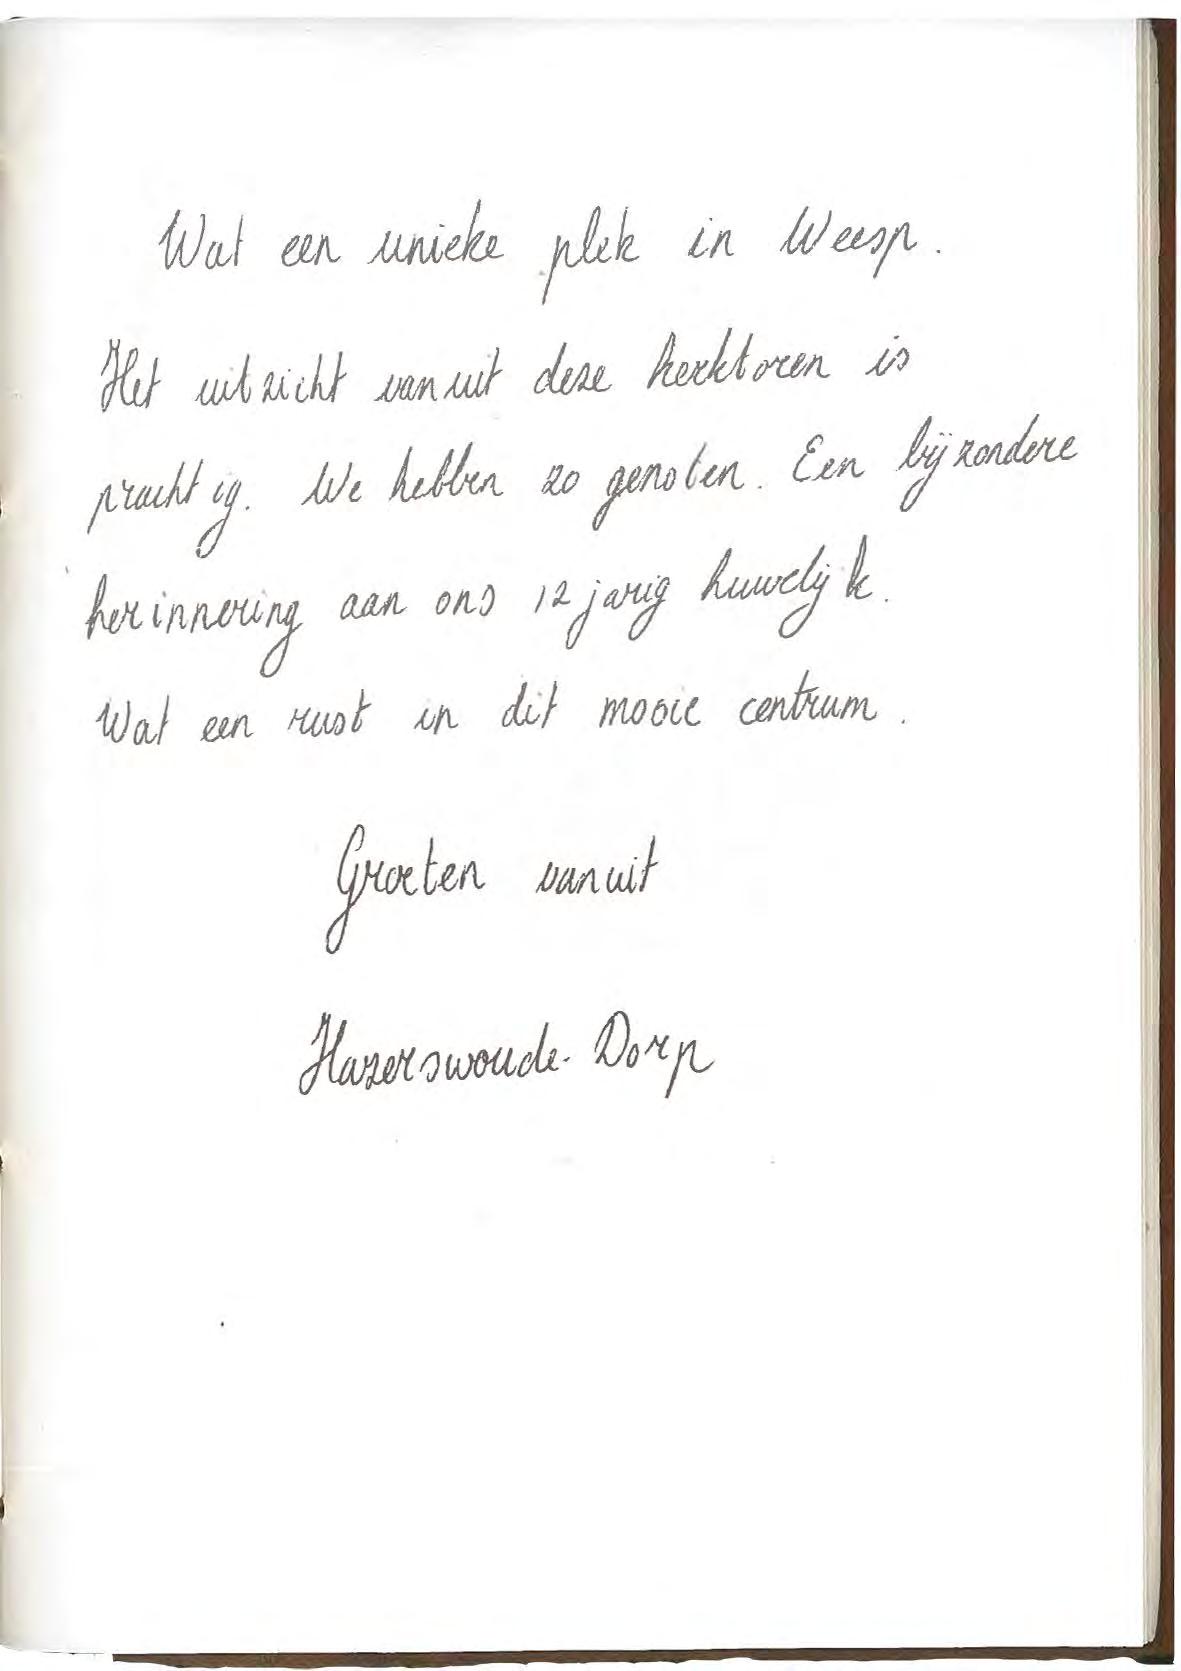 Wat een unieke plek in Weesp.
Het uitzicht vanuit deze kerktoren is
prachtig. We hebben zo genoten. Een bijzondere
herinnering aan ons 12 jarig huwelijk.
Wat een rust in dit mooie centrum.
Groeten vanuit
Hazerswoude-Dorp